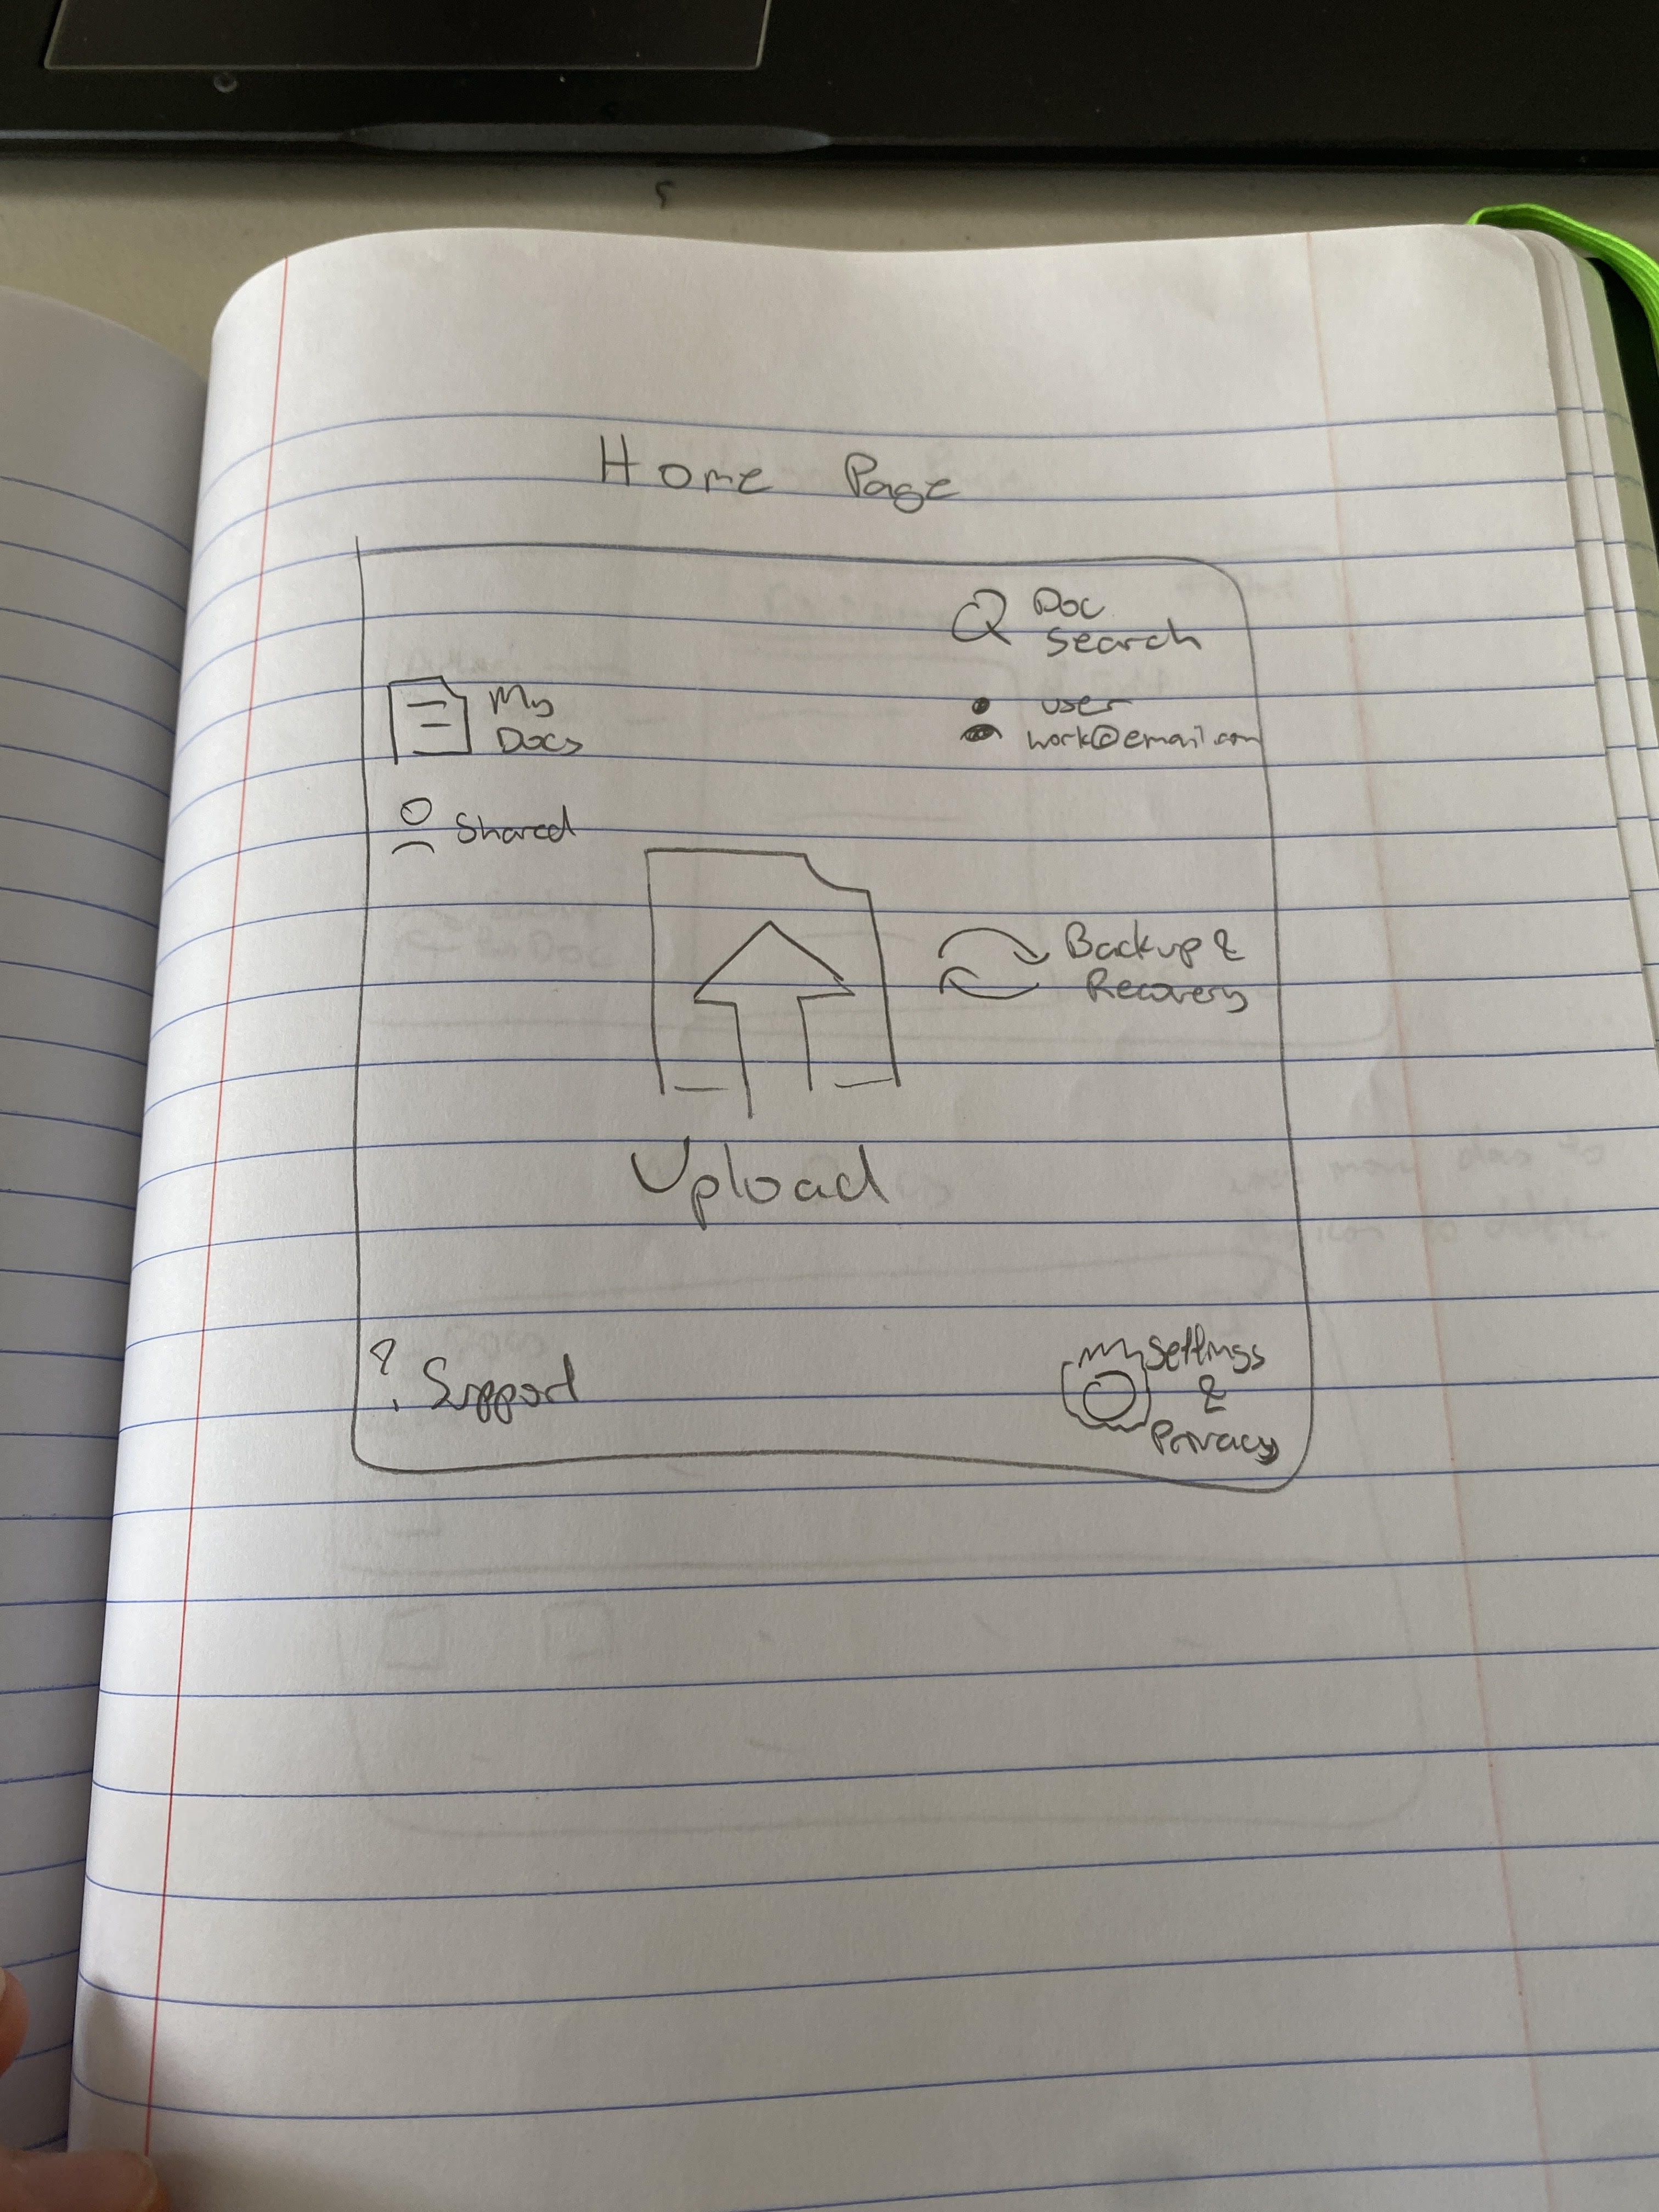 Home Page
Doc
Search
My
Docs
user
work@email.com
Shared
Backup &
Recovery
Upload
? Support
Settings
&
Privacy